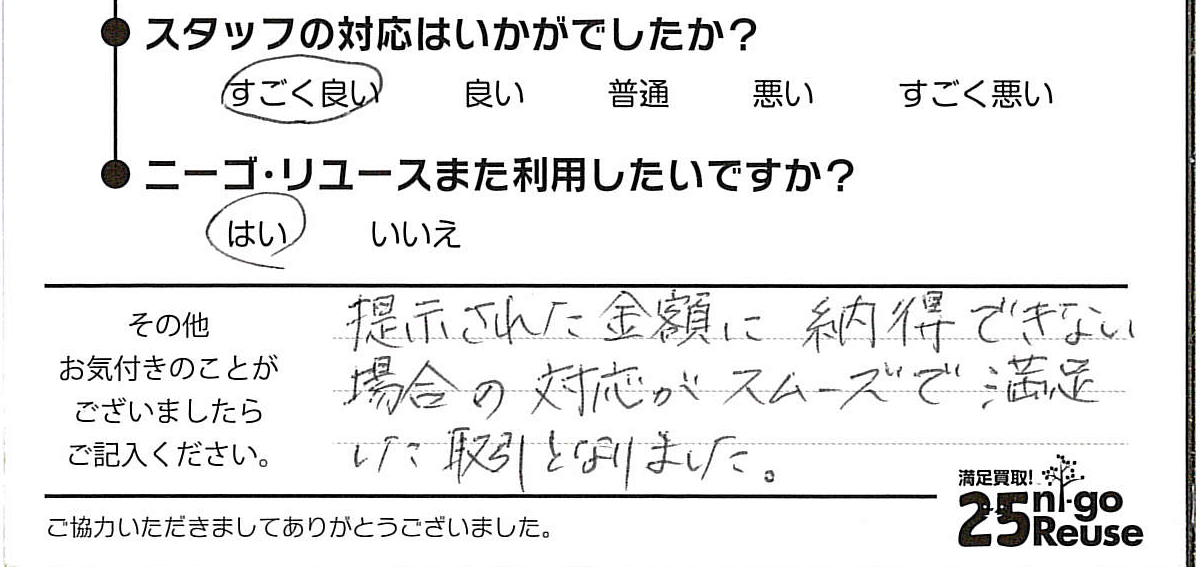 スタッフの対応はいかがでしたか？
すごく良い 良い 普通 悪い すごく悪い
ニーゴ・リユースまた利用したいですか？
はい いいえ
その他
お気付きのことが
ございましたら
ご記入ください。
提示された金額に納得できない
場合の対応がスムーズで満足
いた取引となりました。
ご協力いただきましてありがとうございました。
満足買取!
25 ni-go
Reuse